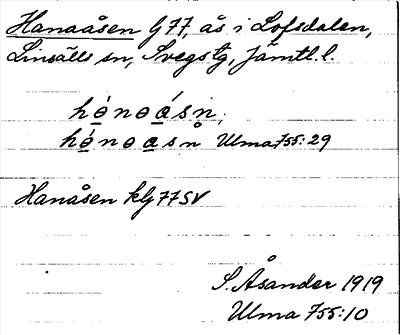 Hanaåsen G77, ås i Lofsdalen,
Linsälls sn, Svegs tg, Jämtl. l.
hánoásn,
hánoasn Ulma 755:29
Hanåsen klj 77 SV
S. Åsander 1919
Ulma 755:10